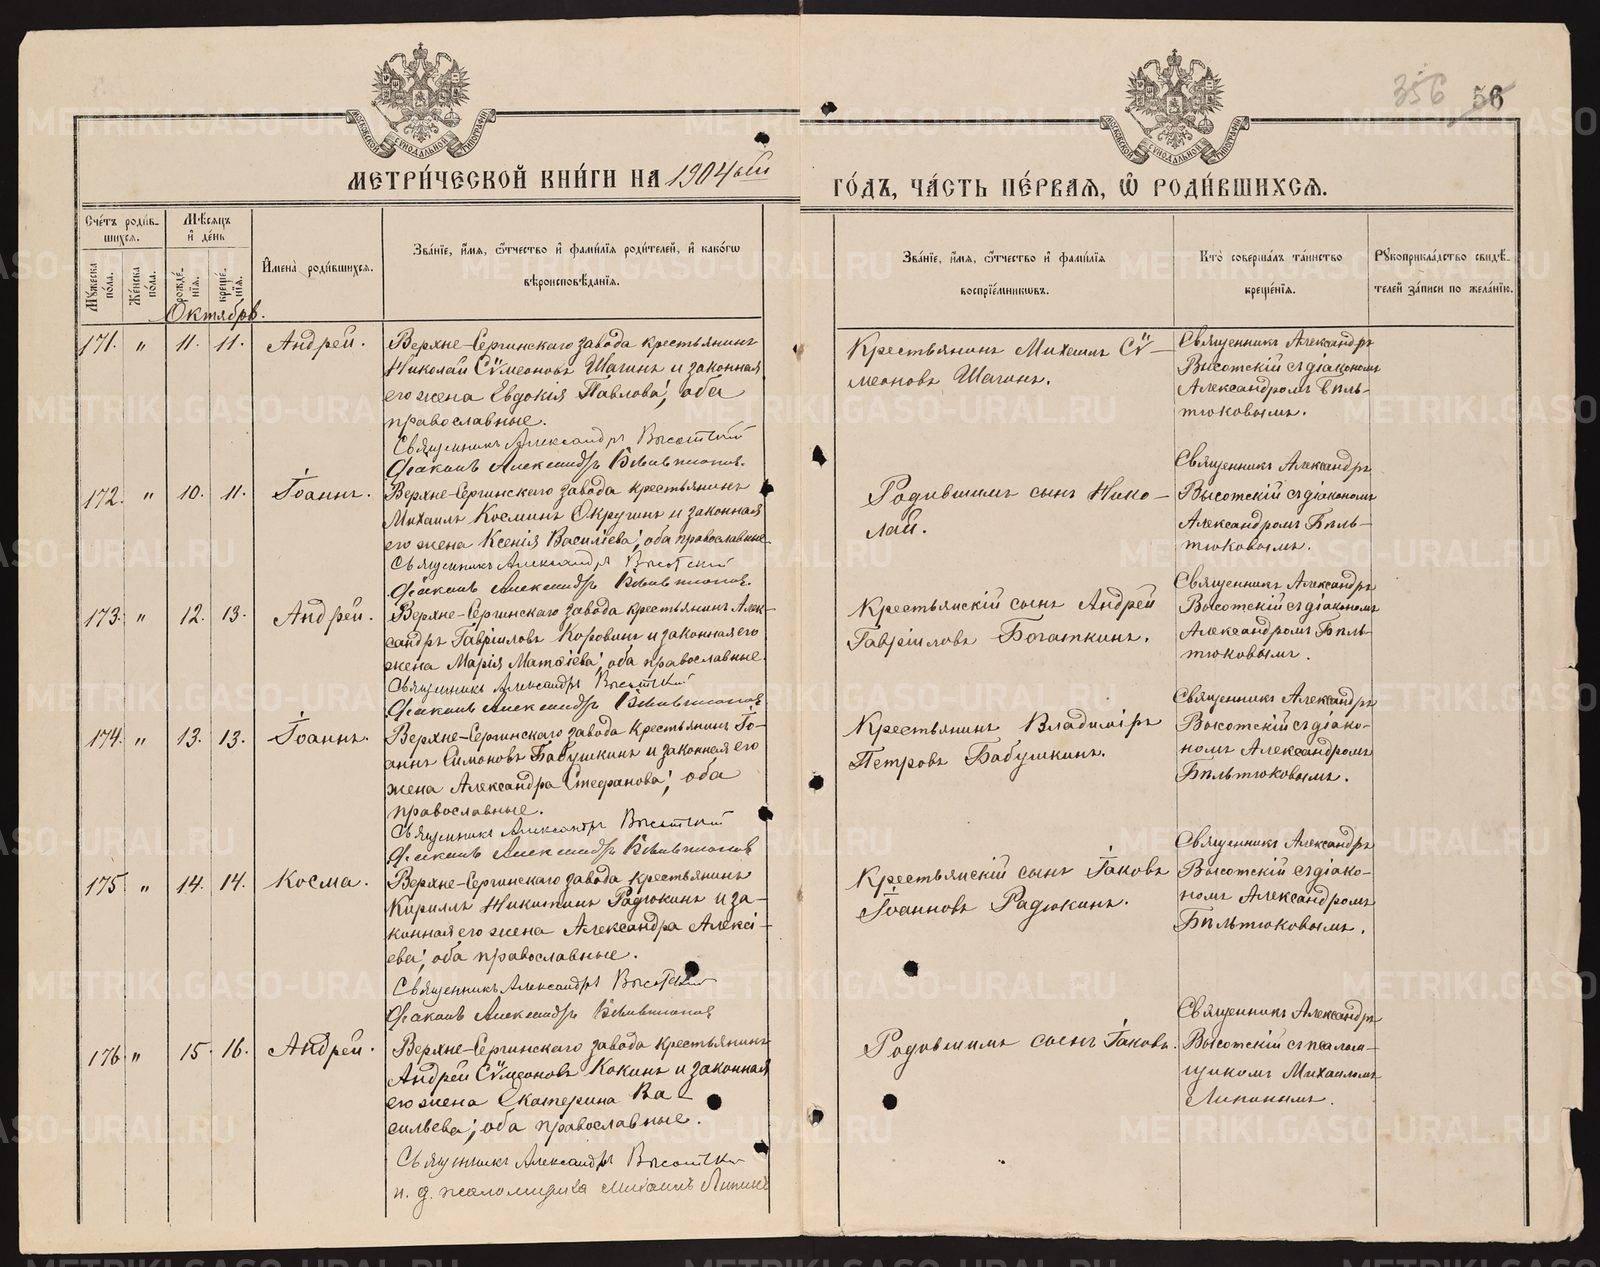 356 56
МЕТРИ́ЧЕСКОЙ КНИ́ГИ НА 1904ый ГО́ДЪ, ЧА́СТЬ ПЕ́РВАЯ, Ѡ РОДИ́ВШИХСЯ.
Сче́тъ роди́в-
шихся.
Мѣ́сяцъ
и҆ де́нь
Мꙋ́жеска
по́ла.
Же́нска
по́ла.
рожде́-
нїя.
креще́-
нїя.
И҆мена̀ роди́вшихся.
Зва́нїе, и҆́мя, ѻ҆́тчество и҆ фами́лїя роди́телей, и҆ како́гѡ
вѣроисповѣ́данїя.
Зва́нїе, и҆́мя, ѻ҆́тчество и҆ фами́лїя
воспрїе́мникѡвъ.
Кто̀ соверша́лъ та́инство
креще́нїя.
Рꙋкоприкла́дство свидѣ́-
телей за́писи по жела́нїю.
Октябрь.
171. " 11. 11. Андрей.
Верхне-Сергинскаго завода крестьянинъ
Николай Сѵмеоновъ Шагинъ и законная
его жена Евдокія Павлова, оба
православные.
Священникъ Александръ Высотскій
Діаконъ Александръ Бѣльтюковъ.
Крестьянинъ Михаилъ Сѵ-
меоновъ Шагинъ.
Священникъ Александръ
Высотскій съ діакономъ
Александромъ Бѣль-
тюковымъ.
172. " 10. 11. Іоаннъ.
Верхне-Сергинскаго завода крестьянинъ
Михаилъ Косминъ Округинъ и законная
его жена Ксенія Василіева, оба православные.
Священникъ Александръ Высотскій
Діаконъ Александръ Бѣльтюковъ.
Родившимъ сынъ Нико-
лай.
Священникъ Александръ
Высотскій съ діакономъ
Александромъ Бѣль-
тюковымъ.
173. " 12. 13. Андрей.
Верхне-Сергинскаго завода крестьянинъ Алек-
сандръ Гавріиловъ Коровинъ и законная его
жена Марія Матѳіева, оба православные.
Священникъ Александръ Высотскій
Діаконъ Александръ Бѣльтюковъ
Крестьянскій сынъ Андрей
Гавріиловъ Богаткинъ.
Священникъ Александръ
Высотскій съ діакономъ
Александромъ Бѣль-
тюковымъ.
174. " 13. 13. Іоаннъ.
Верхне-Сергинскаго завода Крестьянинъ Іо-
аннъ Симоновъ Бабушкинъ и законная его
жена Александра Стефанова, оба
православные.
Священникъ Александръ Высотскій
Діаконъ Александръ Бѣльтюковъ
Крестьянинъ Владиміръ
Петровъ Бабушкинъ.
Священникъ Александръ
Высотскій съ діако-
номъ Александромъ
Бѣльтюковымъ.
175 " 14. 14. Косма.
Верхне-Сергинскаго завода крестьянинъ
Кириллъ Никитинъ Радюкинъ и за-
конная его жена Александра Алексі-
ева, оба православные.
Священникъ Александръ Высотскій
Діаконъ Александръ Бѣльтюковъ
Крестьянскій сынъ Іаковъ
Іоанновъ Радюкинъ.
Священникъ Александръ
Высотскій съ діако-
номъ Александромъ
Бѣльтюковымъ.
176. " 15. 16. Андрей.
Верхне-Сергинскаго завода крестьянинъ
Андрей Сѵмеоновъ Кокинъ и законная
его жена Екатерина Ва-
сильева, оба православные.
Священникъ Александръ Высотскій
и. д. псаломщика Михаилъ Липинъ
Родившимъ сынъ Іаковъ.
Священникъ Александръ
Высотскій съ псалом-
щикомъ Михаиломъ
Липинымъ.